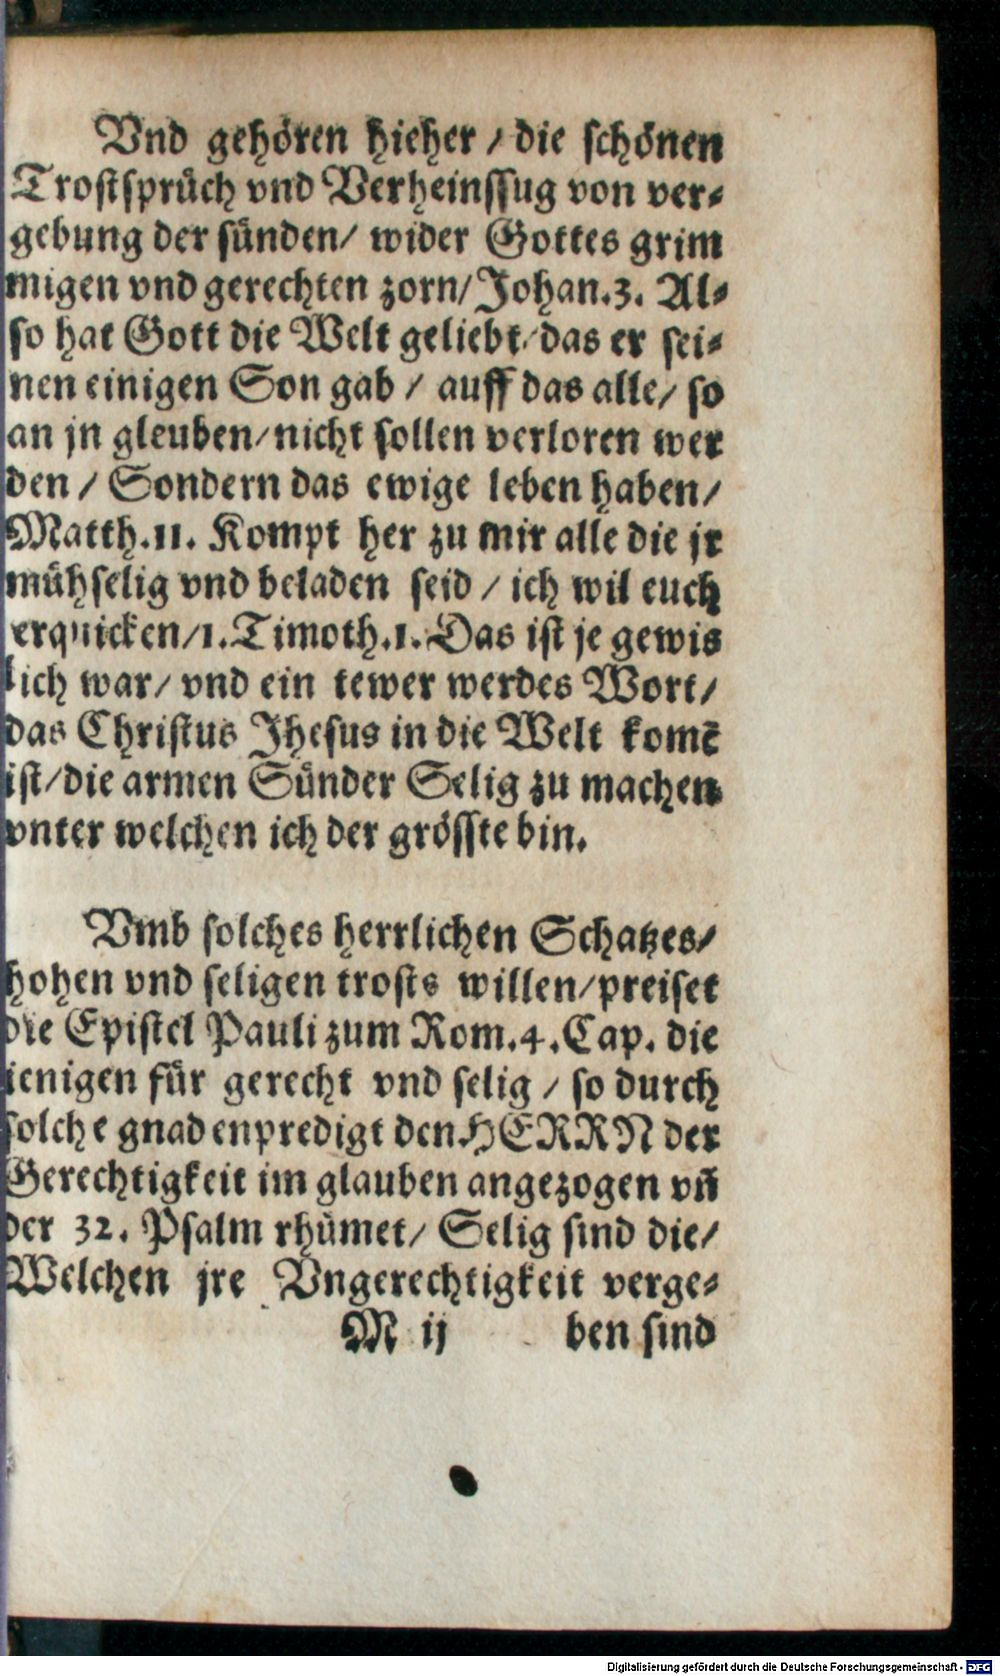 Vnd gehören hieher / die schönen
Trostsprüch vnd Verheinssug von ver-
gebung der sünden/ wider Gottes grim
migen vnd gerechten zorn/ Johan.3. Al-
so hat Gott die Welt geliebt/ das er sei-
nen einigen Son gab / auff das alle/ so
an jn gleuben/ nicht sollen verloren wer
den / Sondern das ewige leben haben/
Matth.11. Kompt her zu mir alle die jr
mühselig vnd beladen seid / ich wil euch
erquicken/1.Timoth.1. Das ist je gewis
lich war/ vnd ein tewer werdes Wort/
das Christus Jhesus in die Welt komē
ist/ die armen Sünder Selig zu machen
vnter welchen ich der grösste bin.
Vmb solches herrlichen Schatzes/
hohen vnd seligen trosts willen/ preiset
die Epistel Pauli zum Rom.4. Cap. die
ienigen für gerecht vnd selig / so durch
solche gnadenpredigt den HERRN der
Gerechtigkeit im glauben angezogen vñ
der 32. Psalm rhümet/ Selig sind die/
Welchen jre Vngerechtigkeit verge-
M ij ben sind
Digitalisierung gefördert durch die Deutsche Forschungsgemeinschaft - DFG